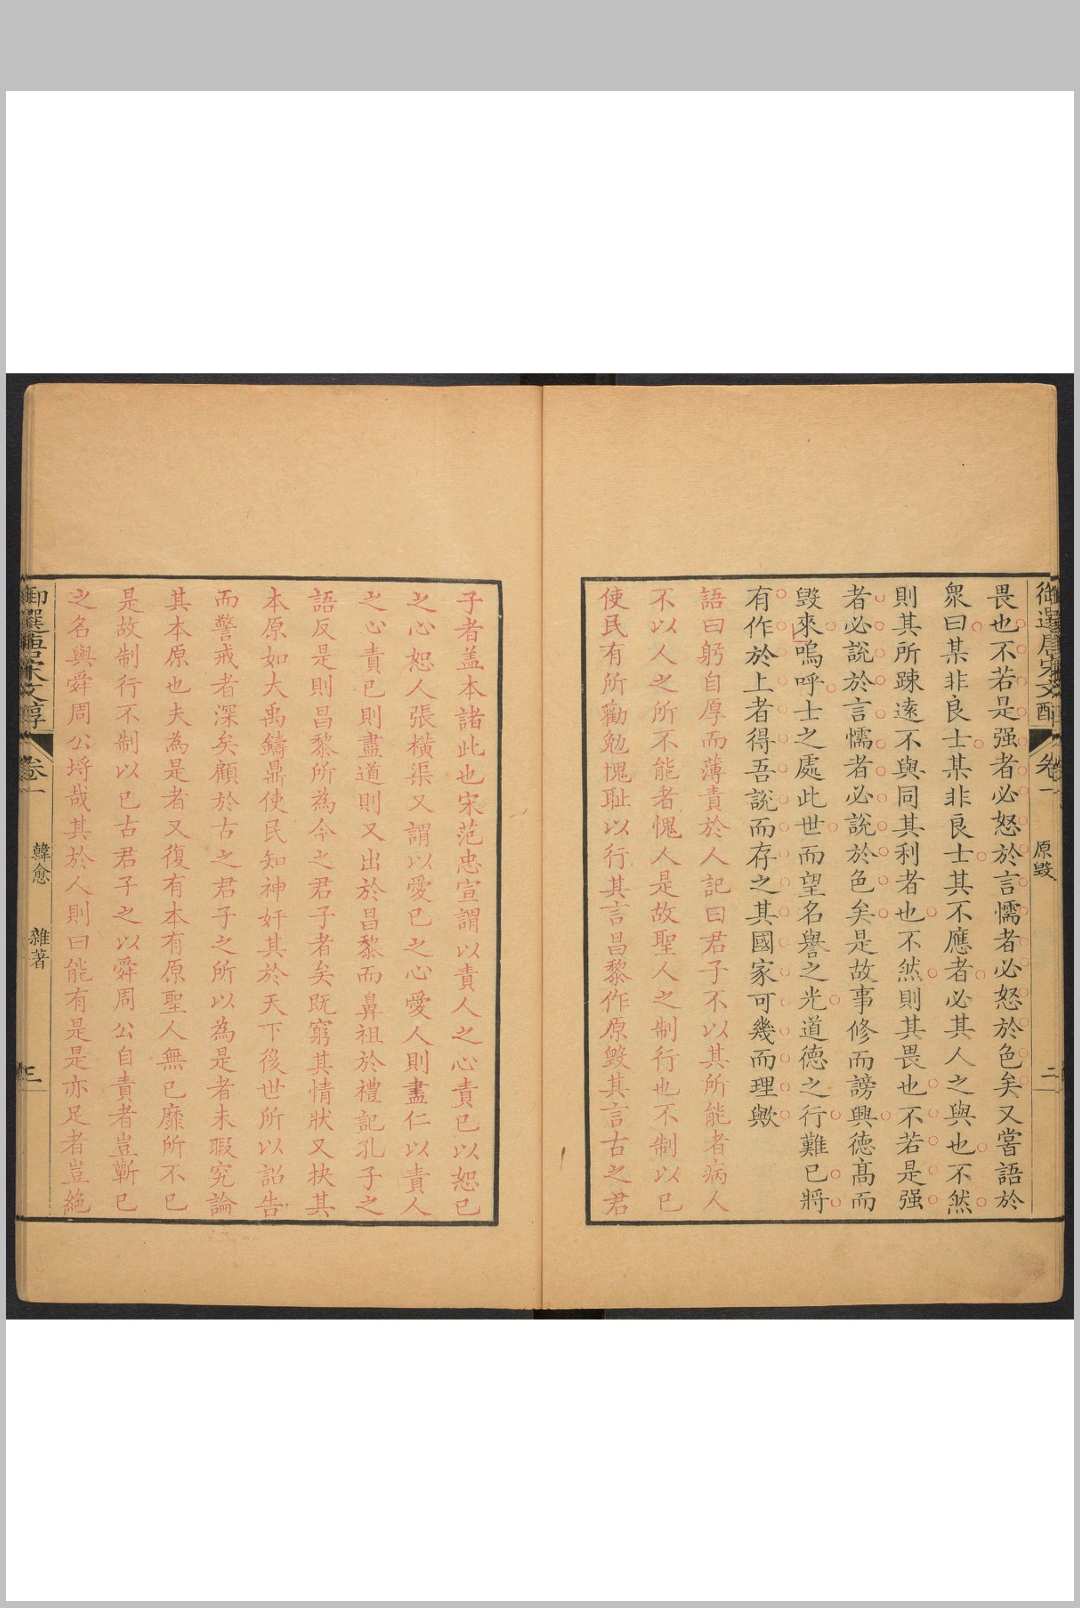 御選唐宋文醇 卷一 原毀 二
畏也不若是强者必怒於言懦者必怒於色矣又嘗語於
衆曰某非良士某非良士其不應者必其人之與也不然
則其所踈逺不與同其利者也不然則其畏也不若是强
者必說於言懦者必說於色矣是故事修而謗興德髙而
毀來嗚呼士之處此世而望名譽之光道德之行難已將
有作於上者得吾說而存之其國家可幾而理歟
語曰躬自厚而薄責於人記曰君子不以其所能者病人
不以人之所不能者愧人是故聖人之制行也不制以已
使民有所勸勉愧耻以行其言昌黎作原毀其言古之君
子者盖本諸此也宋范忠宣謂以責人之心責已以恕已
之心恕人張橫渠又謂以愛已之心愛人則盡仁以責人
之心責已則盡道則又出於昌黎而鼻祖於禮記孔子之
語反是則昌黎所為今之君子者矣既窮其情狀又抉其
本原如大禹鑄鼎使民知神奸其於天下後世所以詔告
而警戒者深矣顧於古之君子之所以為是者未暇究論
其本原也夫為是者又復有本有原聖人無已靡所不已
是故制行不制以已古君子之以舜周公自責者豈蘄已
之名與舜周公埓哉其於人則曰能有是是亦足者豈絶
御選唐宋文醇 卷一 韓愈 雜著 三